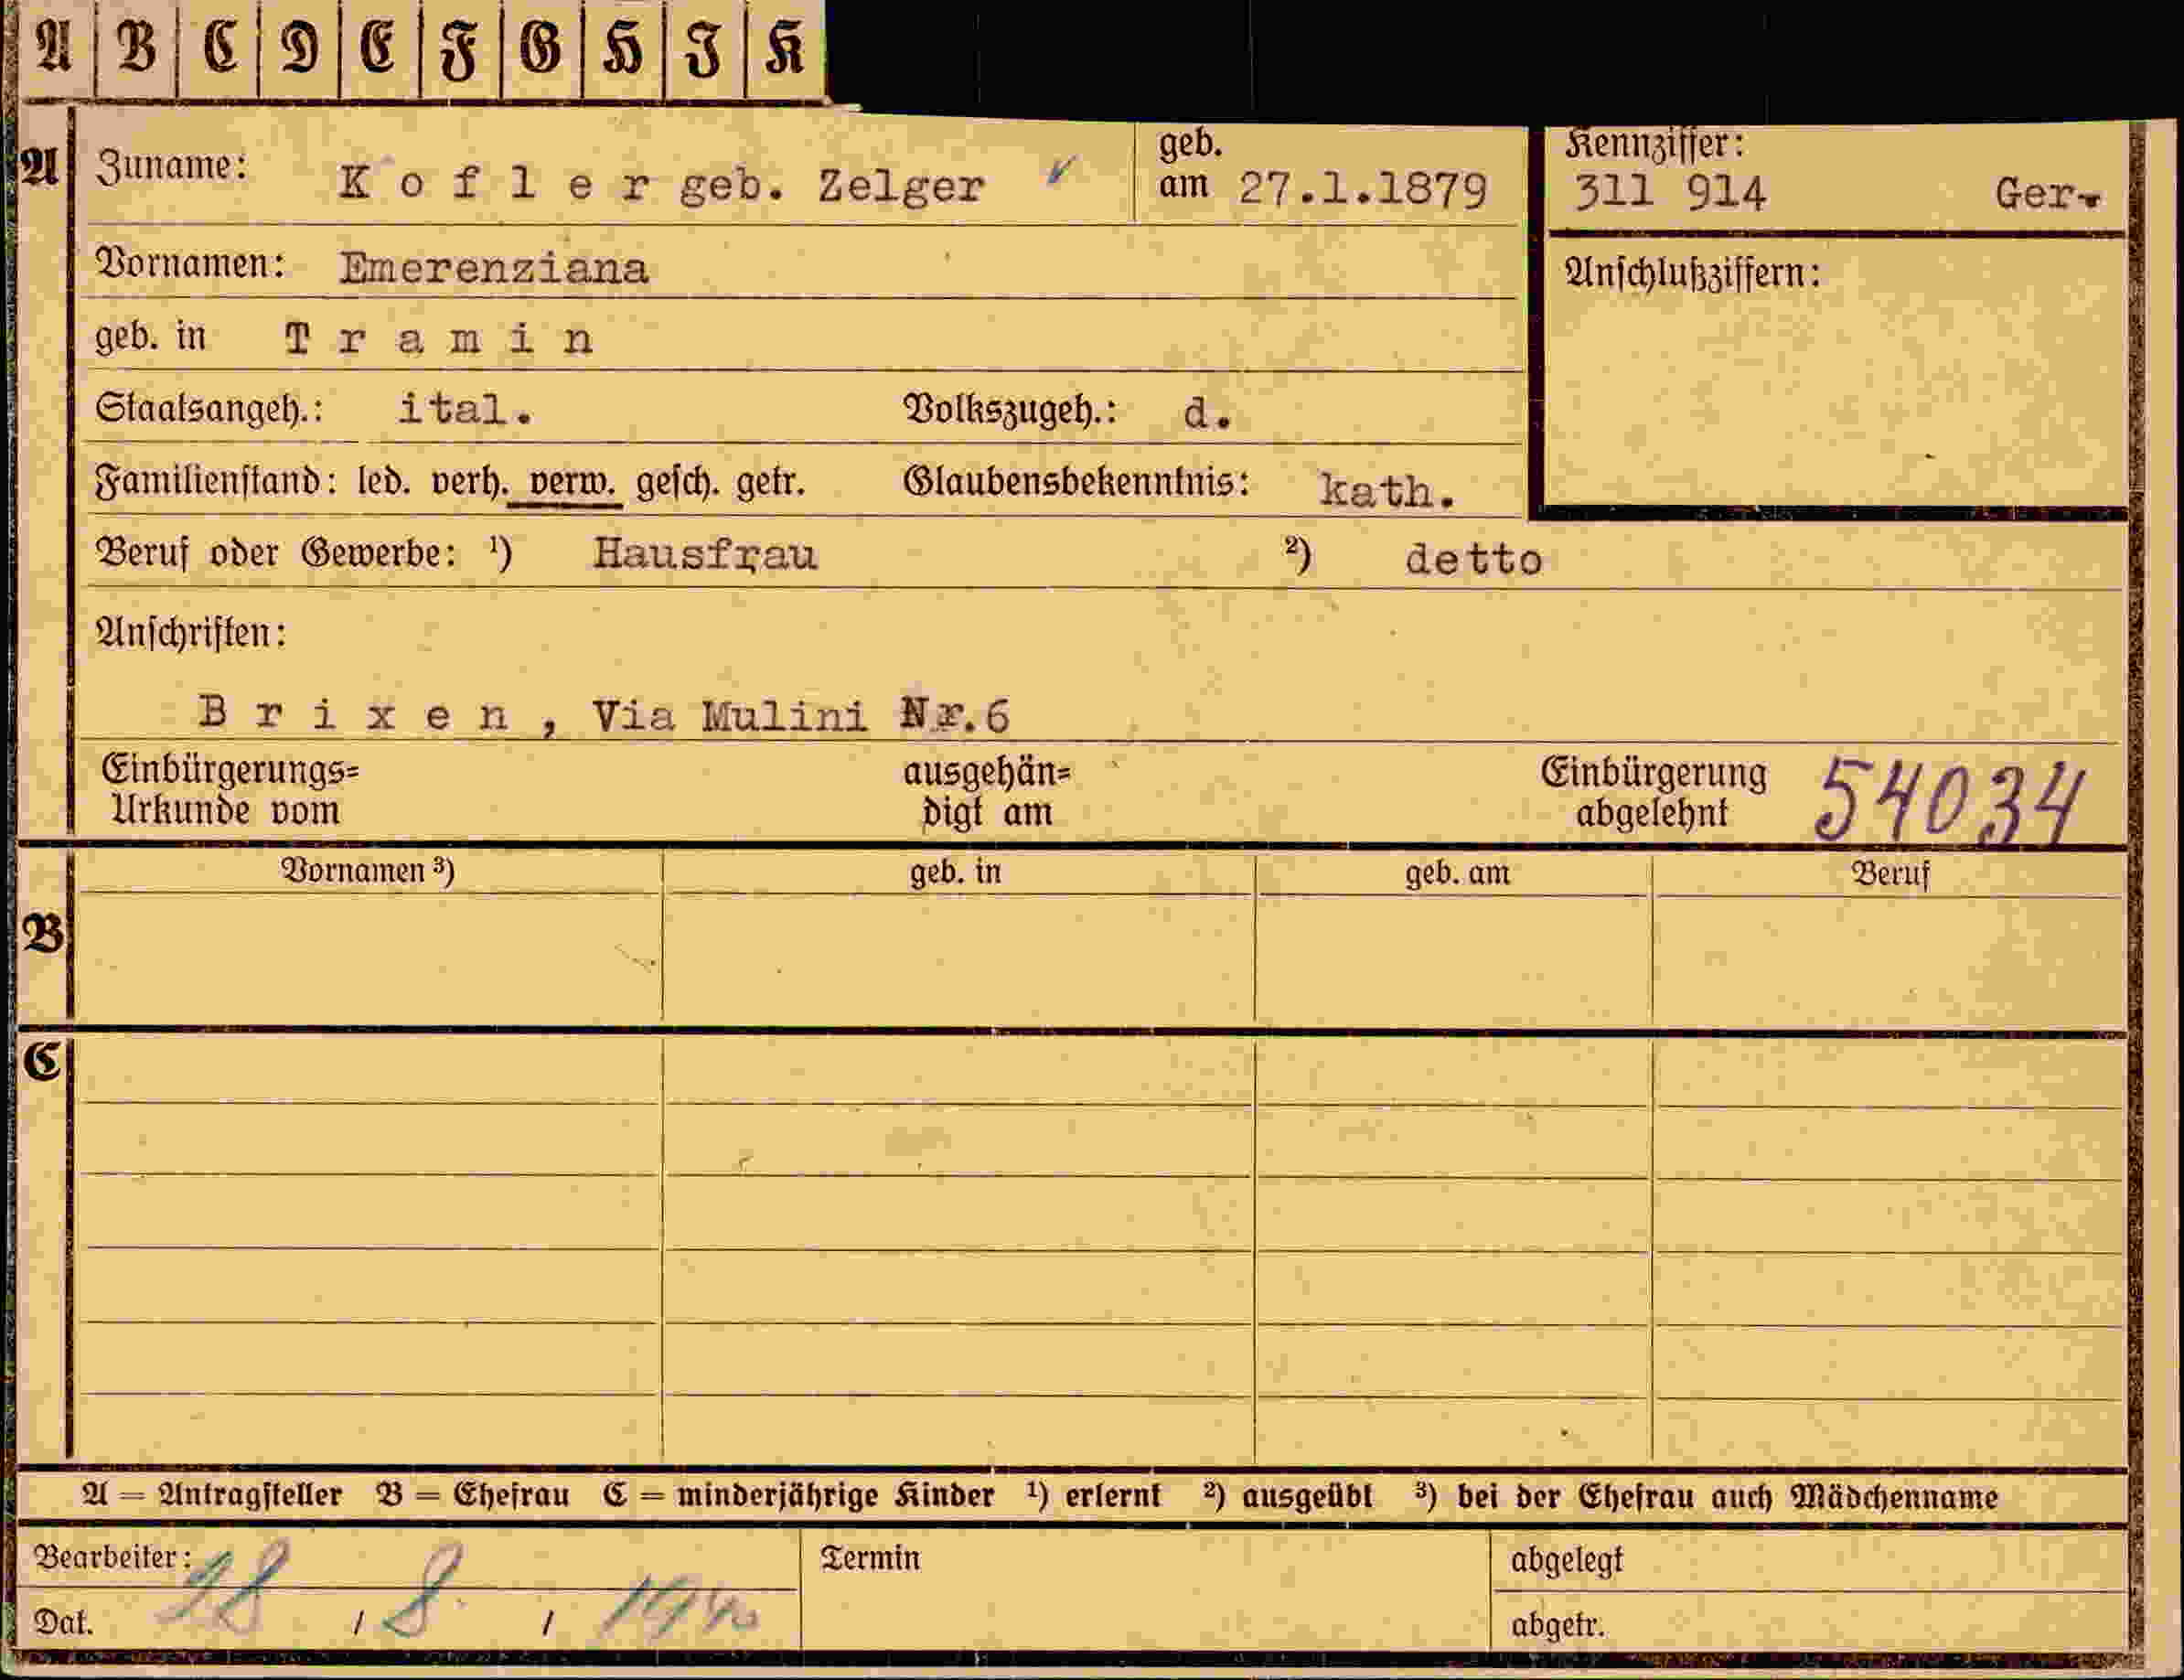 A B C D E F G H I K
A Zuname: K o f l e r geb. Zelger
geb. am 27.1.1879
Kennziffer: 311 914 Ger.
Vornamen: Emerenziana
Anschlußziffern:
geb. in T r a m i n
Staatsangeh.: ital. Volkszugeh.: d.
Familienstand: led. verh. verw. gesch. getr. Glaubensbekenntnis: kath.
Beruf oder Gewerbe: ¹) Hausfrau ²) detto
Anschriften:
B r i x e n , Via Mulini Nr.6
Einbürgerungs= ausgehän= Einbürgerung 54034
Urkunde vom digt am abgelehnt
Vornamen ³) geb. in geb. am Beruf
B
C
A = Antragsteller B = Ehefrau C = minderjährige Kinder ¹) erlernt ²) ausgeübt ³) bei der Ehefrau auch Mädchenname
Bearbeiter: Termin abgelegt
Dat. 28 / 8. / 1940 abgetr.